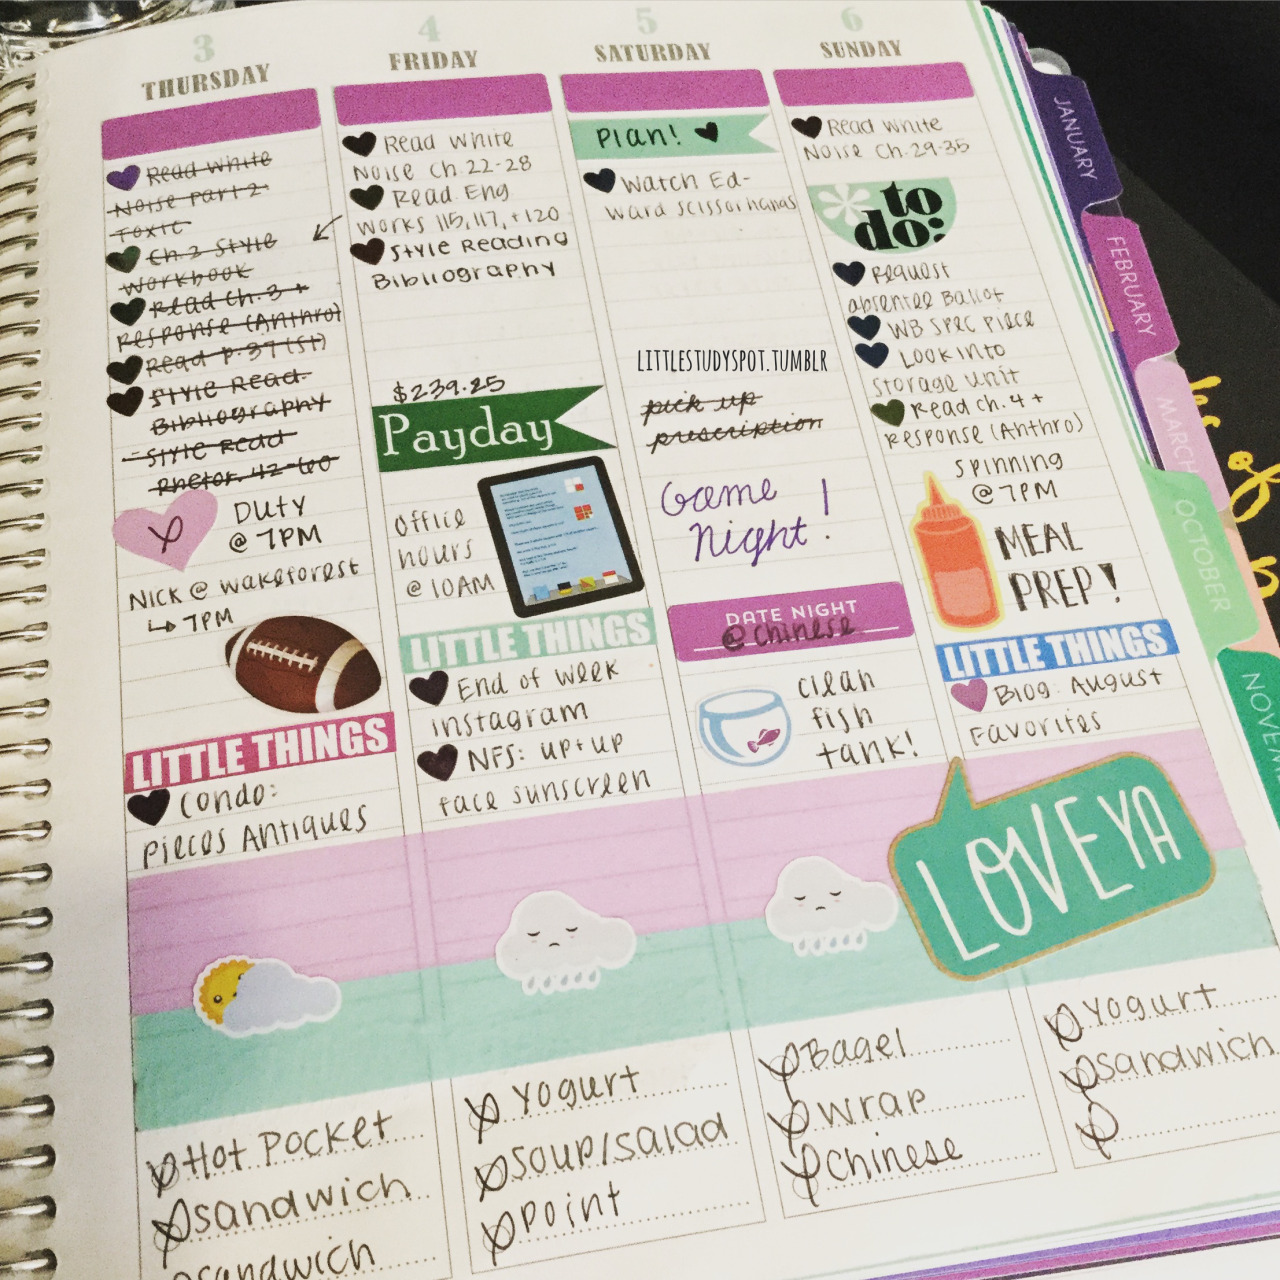 3
THURSDAY
Read White
Noise part 2
Toxic
Ch. 3 Style
Workbook
Read Ch. 3 +
Response (Anthro)
Read p. 37 (St)
Style Read.
Bibliography
Style Read
Rhetor. 42-60
DUTY
@ 7PM
NICK @ wakeforest
7PM
LITTLE THINGS
Condo:
Pieces Antiques
Hot Pocket
sandwich
sandwich
4
FRIDAY
Read White
Noise Ch. 22-28
Read Eng
Works 115, 117, + 120
Style Reading
Bibliography
$239.25
Payday
Office
hours
@ 10AM
LITTLE THINGS
End of week
instagram
NFS: up + up
face sunscreen
Yogurt
Soup/salad
Point
5
SATURDAY
Plan!
Watch Ed-
ward Scissorhands
LITTLESTUDYSPOT.TUMBLR
pick up
prescription
Game
Night!
DATE NIGHT
@ Chinese
clean
fish
tank!
Bagel
wrap
Chinese
6
SUNDAY
Read White
Noise Ch. 29-35
to
do:
Request
absentee Ballot
WB Spec Piece
Look into
storage unit
Read Ch. 4 +
Response (Anthro)
Spinning
@ 7PM
MEAL
PREP!
LITTLE THINGS
Blog: August
Favorites
LOVE YA
Yogurt
sandwich
JANUARY
FEBRUARY
MARCH
OCTOBER
of